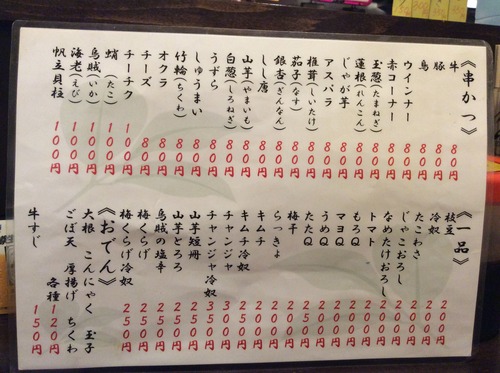 《串かつ》
牛 80円
豚 80円
鳥 80円
ウインナー 80円
赤コーナー 80円
玉葱(たまねぎ) 80円
蓮根(れんこん) 80円
じゃが芋 80円
アスパラ 80円
椎茸(しいたけ) 80円
茄子(なす) 80円
銀杏(ぎんなん) 80円
しし唐 80円
山芋(やまいも) 80円
白葱(しろねぎ) 80円
うずら 80円
しゅうまい 80円
竹輪(ちくわ) 80円
オクラ 80円
チーズ 80円
チーチク 100円
蛸(たこ) 100円
烏賊(いか) 100円
海老(えび) 100円
帆立貝柱 100円
《一品》
枝豆 200円
冷奴 200円
たこわさ 200円
じゃこおろし 200円
なめたけおろし 200円
トマト 200円
もろQ 200円
マヨQ 200円
うめQ 200円
たたQ 200円
梅干 200円
らっきょ 200円
キムチ 200円
キムチ冷奴 250円
チャンジャ 300円
チャンジャ冷奴 350円
山芋短冊 250円
山芋とろろ 250円
烏賊の塩辛 250円
梅くらげ 250円
梅くらげ冷奴 250円
《おでん》
大根 こんにゃく 玉子
ごぼ天 厚揚げ ちくわ
各種 120円
牛すじ 150円